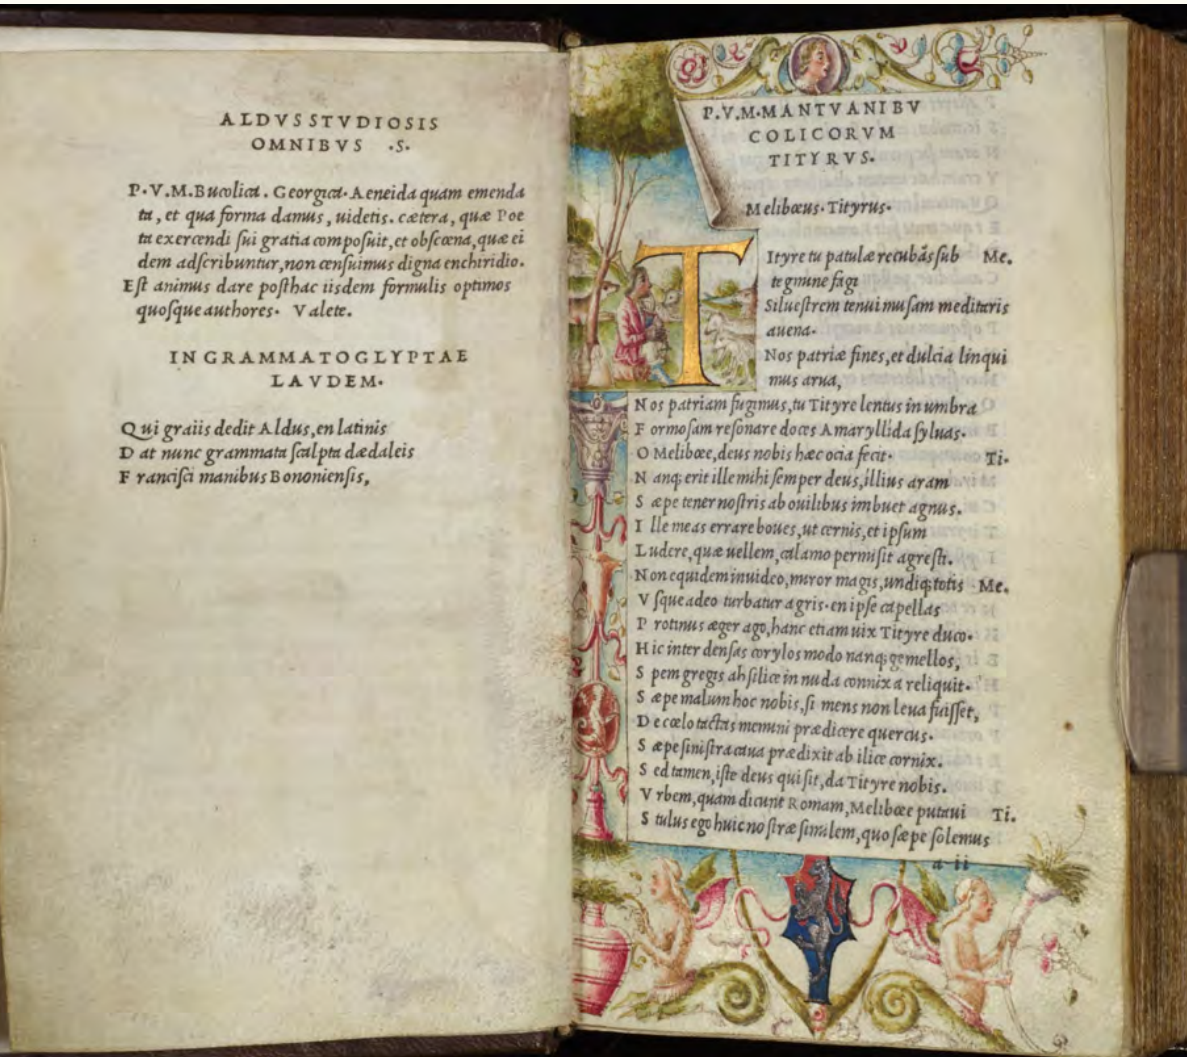 ALDVS STVDIOSIS
OMNIBVS .S.
P.V.M.Bucolica. Georgica. Aeneida quam emenda
ta, et qua forma damus, uidetis. cætera, quæ Poe
ta exercendi sui gratia composuit, et obscœna, quæ ei
dem adscribuntur, non censuimus digna enchiridio.
Est animus dare posthac iisdem formulis optimos
quosque authores. Valete.
IN GRAMMATOGLYPTAE
LAVDEM.
Qui graiis dedit Aldus, en latinis
Dat nunc grammata scalpta dædaleis
Francisci manibus Bononiensis,
P.V.M.MANTVANI BV
COLICORVM
TITYRVS.
Melibœus. Tityrus.
TItyre tu patulæ recubãs sub Me.
tegmine fagi
Siluestrem tenui musam meditaris
auena.
Nos patriæ fines, et dulcia linqui
mus arua,
Nos patriam fugimus, tu Tityre lentus in umbra
Formosam resonare doces Amaryllida syluas.
O Melibœe, deus nobis hæc ocia fecit. Ti.
Nanq; erit ille mihi semper deus, illius aram
Sæpe tener nostris ab ouilibus imbuet agnus.
Ille meas errare boues, ut cernis, et ipsum
Ludere, quæ uellem, calamo permisit agresti.
Non equidem inuideo, miror magis, undiq; totis Me.
Vsque adeo turbatur agris. en ipse capellas
Protinus æger ago, hanc etiam uix Tityre duco.
Hic inter densas corylos modo nanq; gemellos,
Spem gregis ah silice in nuda connixa reliquit.
Sæpe malum hoc nobis, si mens non leua fuisset,
De cœlo tactas memini prædicere quercus.
Sæpe sinistra caua prædixit ab ilice cornix.
Sed tamen, iste deus qui sit, da Tityre nobis.
Vrbem, quam dicunt Romam, Melibœe putaui Ti.
Stulus ego huic nostræ similem, quo sæpe solemus
a ii